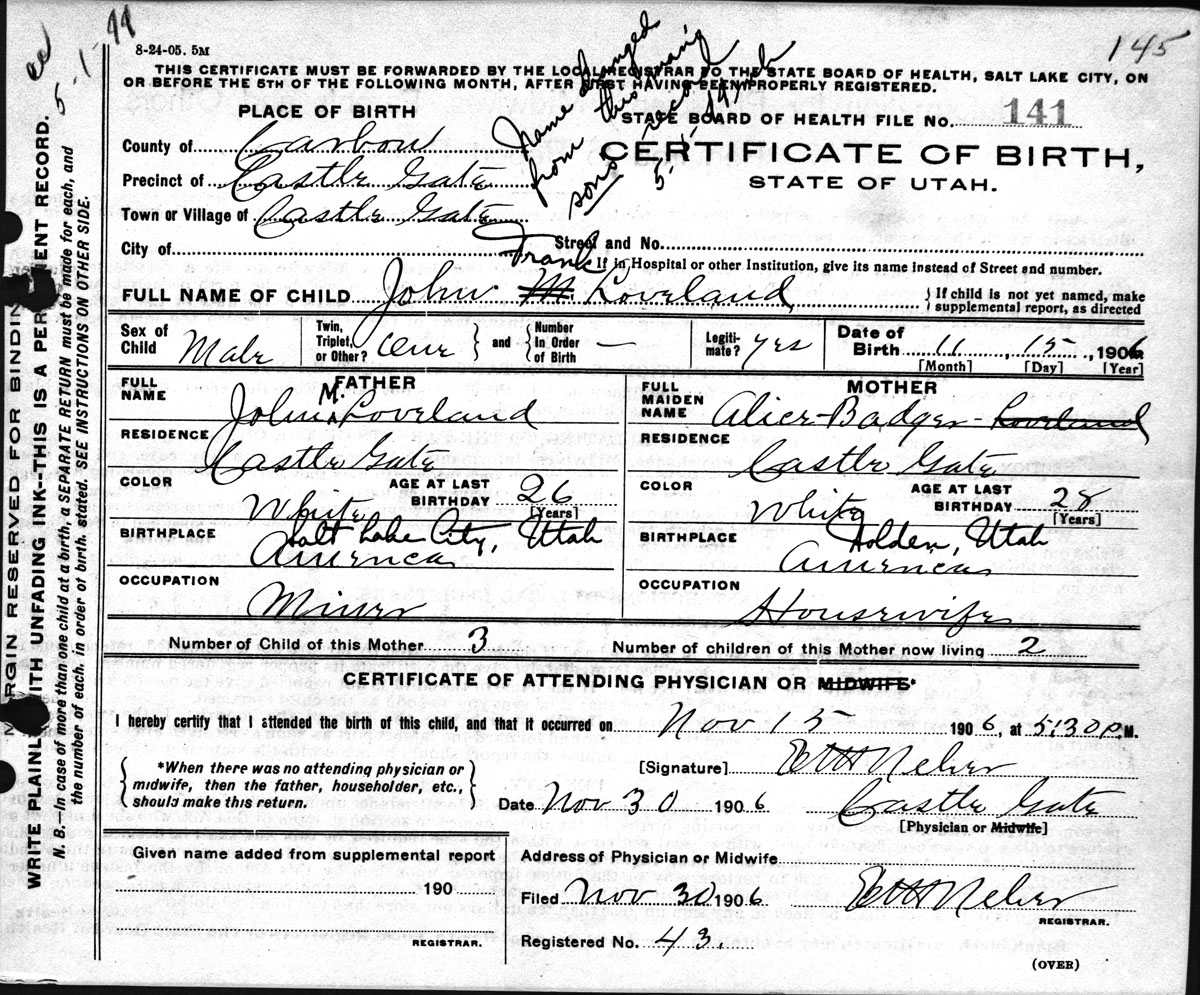 ed 5-1-44
8-24-05. 5M
145
THIS CERTIFICATE MUST BE FORWARDED BY THE LOCAL REGISTRAR TO THE STATE BOARD OF HEALTH, SALT LAKE CITY, ON
OR BEFORE THE 5TH OF THE FOLLOWING MONTH, AFTER FIRST HAVING BEEN PROPERLY REGISTERED.
Name changed
from this
sons record
PLACE OF BIRTH
STATE BOARD OF HEALTH FILE NO. 141
County of Carbon
CERTIFICATE OF BIRTH,
Precinct of Castle Gate
STATE OF UTAH.
Town or Village of Castle Gate
City of
Street and No.
If in Hospital or other Institution, give its name instead of Street and number.
Frank
FULL NAME OF CHILD John M. Loveland
If child is not yet named, make
supplemental report, as directed
Sex of Child Male
Twin, Triplet, or Other?
and
Number In Order of Birth —
Legiti- mate? yes
Date of Birth 11, 15, 1906
[Month] [Day] [Year]
FATHER
FULL NAME John M. Loveland
RESIDENCE
Castle Gate
COLOR White
AGE AT LAST BIRTHDAY 26 [Years]
BIRTHPLACE Salt Lake City, Utah
America
OCCUPATION
Miner
MOTHER
FULL MAIDEN NAME Alice-Badger-Loveland
RESIDENCE
Castle Gate
COLOR White
AGE AT LAST BIRTHDAY 28 [Years]
BIRTHPLACE Holden, Utah
America
OCCUPATION
Housewife
Number of Child of this Mother 3
Number of children of this Mother now living 2
CERTIFICATE OF ATTENDING PHYSICIAN OR MIDWIFE*
I hereby certify that I attended the birth of this child, and that it occurred on Nov 15 1906, at 5:30 P.M.
*When there was no attending physician or
midwife, then the father, householder, etc.,
should make this return.
[Signature]
Date Nov 30 1906 Castle Gate
[Physician or Midwife]
Given name added from supplemental report
190
REGISTRAR.
Address of Physician or Midwife
Filed Nov 30 1906
REGISTRAR.
Registered No. 43.
(OVER)
MARGIN RESERVED FOR BINDING
WRITE PLAINLY WITH UNFADING INK--THIS IS A PERMANENT RECORD.
N. B.—In case of more than one child at a birth, a SEPARATE RETURN must be made for each, and
the number of each, in order of birth, stated. SEE INSTRUCTIONS ON OTHER SIDE.